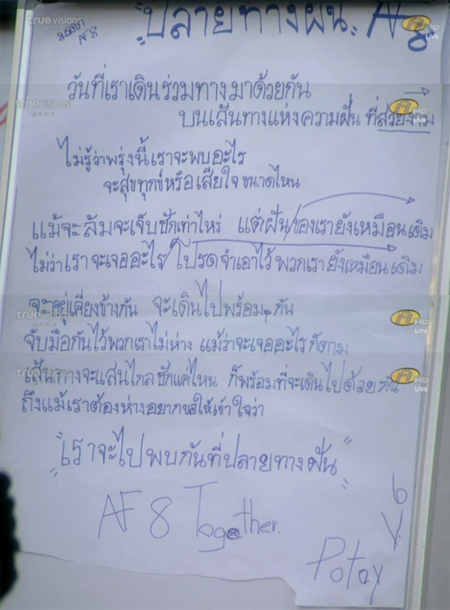 "ปลายทางฝัน" AF8
วันที่เราเดินร่วมทางมาด้วยกัน
บนเส้นทางแห่งความฝัน ที่สวยงาม
ไม่รู้ว่าพรุ่งนี้เราจะพบอะไร
จะสุขทุกข์หรือเสียใจ ขนาดไหน
แม้จะล้มจะเจ็บซักเท่าไหร่ แต่ฝันของเรายังเหมือนเดิม
ไม่ว่าเราจะเจออะไร โปรดจำเอาไว้ พวกเรายังเหมือนเดิม
จะอยู่เคียงข้างกัน จะเดินไปพร้อมๆกัน
จับมือกันไว้พวกเราไม่ห่าง แม้ว่าจะเจออะไรก็ตาม
เส้นทางจะแสนไกลซักแค่ไหน ก็พร้อมที่จะเดินไปด้วยกัน
ถึงแม้เราต้องห่างอยากขอให้เข้าใจว่า
"เราจะไปพบกันที่ปลายทางฝัน"
AF8 Together.
Potay
V6
true visions
HD
LIVE